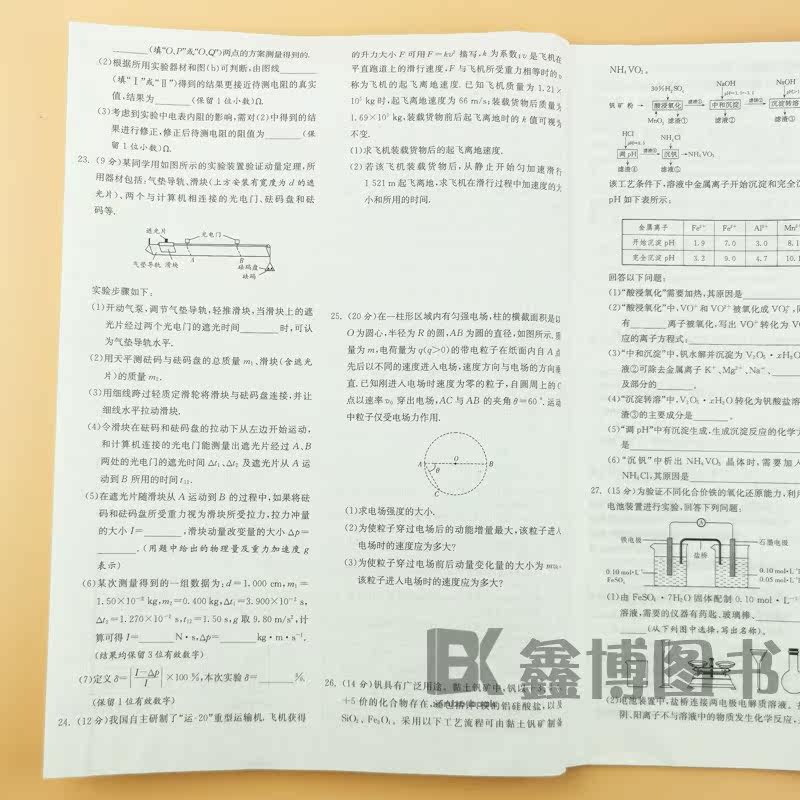 ________(填“O、P”或“O、Q”)两点的方案测量得到的.
(2)根据所用实验器材和图(b)可判断,由图线________
(填“Ⅰ”或“Ⅱ”)得到的结果更接近待测电阻的真实
值,结果为________(保留 1 位小数)Ω.
(3)考虑到实验中电表内阻的影响,需对(2)中得到的结
果进行修正,修正后待测电阻的阻值为________(保
留 1 位小数)Ω.
23. (9 分)某同学用如图所示的实验装置验证动量定理,所
用器材包括:气垫导轨、滑块(上方安装有宽度为 d 的遮
光片)、两个与计算机相连接的光电门、砝码盘和砝
码等.
遮光片 光电门
气垫导轨 滑块 A B
砝码盘
砝码
实验步骤如下:
(1)开动气泵,调节气垫导轨,轻推滑块,当滑块上的遮
光片经过两个光电门的遮光时间________时,可认
为气垫导轨水平.
(2)用天平测砝码与砝码盘的总质量 m₁、滑块(含遮光
片)的质量 m₂.
(3)用细线跨过轻质定滑轮将滑块与砝码盘连接,并让
细线水平拉动滑块.
(4)令滑块在砝码和砝码盘的拉动下从左边开始运动,
和计算机连接的光电门能测量出遮光片经过 A、B
两处的光电门的遮光时间 Δt₁、Δt₂ 及遮光片从 A 运
动到 B 所用的时间 t₁₂.
(5)在遮光片随滑块从 A 运动到 B 的过程中,如果将砝
码和砝码盘所受重力视为滑块所受拉力,拉力冲量
的大小 I=________,滑块动量改变量的大小 Δp=
________.(用题中给出的物理量及重力加速度 g
表示)
(6)某次测量得到的一组数据为:d=1.000 cm,m₁=
1.50×10⁻² kg,m₂=0.400 kg,Δt₁=3.900×10⁻² s,
Δt₂=1.270×10⁻² s,t₁₂=1.50 s,g 取 9.80 m/s²,计
算可得 I=________N·s,Δp=________kg·m·s⁻¹.
(结果均保留 3 位有效数字)
(7)定义 δ=|(I−Δp)/I|×100 %,本次实验 δ=________%.
(保留 1 位有效数字)
24. (12 分)我国自主研制了“运-20”重型运输机. 飞机获得
的升力大小 F 可用 F=kv² 描写,k 为系数;v 是飞机在
平直跑道上的滑行速度,F 与飞机所受重力相等时的 v
称为飞机的起飞离地速度. 已知飞机质量为 1.21×
10⁵ kg 时,起飞离地速度为 66 m/s;装载货物后质量为
1.69×10⁵ kg,装载货物前后起飞离地时的 k 值可视为
不变.
(1)求飞机装载货物后的起飞离地速度.
(2)若该飞机装载货物后,从静止开始匀加速滑行
1 521 m 起飞离地,求飞机在滑行过程中加速度的大
小和所用的时间.
25. (20 分)在一柱形区域内有匀强电场,柱的横截面积是以
O 为圆心,半径为 R 的圆,AB 为圆的直径,如图所示.质
量为 m,电荷量为 q(q>0)的带电粒子在纸面内自 A 点
先后以不同的速度进入电场,速度方向与电场的方向垂
直.已知刚进入电场时速度为零的粒子,自圆周上的 C
点以速率 v₀ 穿出电场,AC 与 AB 的夹角 θ=60°.运动
中粒子仅受电场力作用.
A O B
θ
C
(1)求电场强度的大小.
(2)为使粒子穿过电场后的动能增量最大,该粒子进入
电场时的速度应为多大?
(3)为使粒子穿过电场前后动量变化量的大小为 mv₀,
该粒子进入电场时的速度应为多大?
26. (14 分)钒具有广泛用途. 黏土钒矿中,钒以
+5 价的化合物存在,还包括
SiO₂、Fe₃O₄. 采用以下工艺流程可由黏土钒矿制备
NH₄VO₃.
30%H₂SO₄ NaOH NaOH
钒矿粉 酸浸氧化 滤液① 中和沉淀 滤饼② 沉淀转溶
MnO₂ 滤渣① 滤液② 滤渣③
HCl NH₄Cl
调 pH 滤液⑤ 沉钒 NH₄VO₃
滤渣④ 滤液⑤
该工艺条件下,溶液中金属离子开始沉淀和完全沉
pH 如下表所示:
金属离子 Fe³⁺ Fe²⁺ Al³⁺ Mn²⁺
开始沉淀 pH 1.9 7.0 3.0 8.1
完全沉淀 pH 3.2 9.0 4.7 10.1
回答以下问题:
(1)“酸浸氧化”需要加热,其原因是
(2)“酸浸氧化”中,VO⁺ 和 VO²⁺ 被氧化成 VO₂⁺,同
有________离子被氧化,写出 VO⁺ 转化为 VO
应的离子方程式:
(3)“中和沉淀”中,钒水解并沉淀为 V₂O₅·xH₂O
液②可除去金属离子 K⁺、Mg²⁺、Na⁺、
及部分的________.
(4)“沉淀转溶”中,V₂O₅·xH₂O 转化为钒酸盐溶
渣③的主要成分是________.
(5)“调 pH”中有沉淀生成,生成沉淀反应的化学方
是
(6)“沉钒”中析出 NH₄VO₃ 晶体时,需要加入
NH₄Cl,其原因是
27. (15 分)为验证不同化合价铁的氧化还原能力,利用
电池装置进行实验.回答下列问题:
A
铁电极 盐桥 石墨电极
0.10 mol·L⁻¹ 0.10 mol·L⁻¹
FeSO₄ 0.05 mol·L⁻¹
(1)由 FeSO₄·7H₂O 固体配制 0.10 mol·L⁻¹
溶液,需要的仪器有药匙、玻璃棒、
________(从下列图中选择,写出名称).
(2)电池装置中,盐桥连接两电极电解质溶液.
阴、阳离子不与溶液中的物质发生化学反应,
BK 鑫博图书